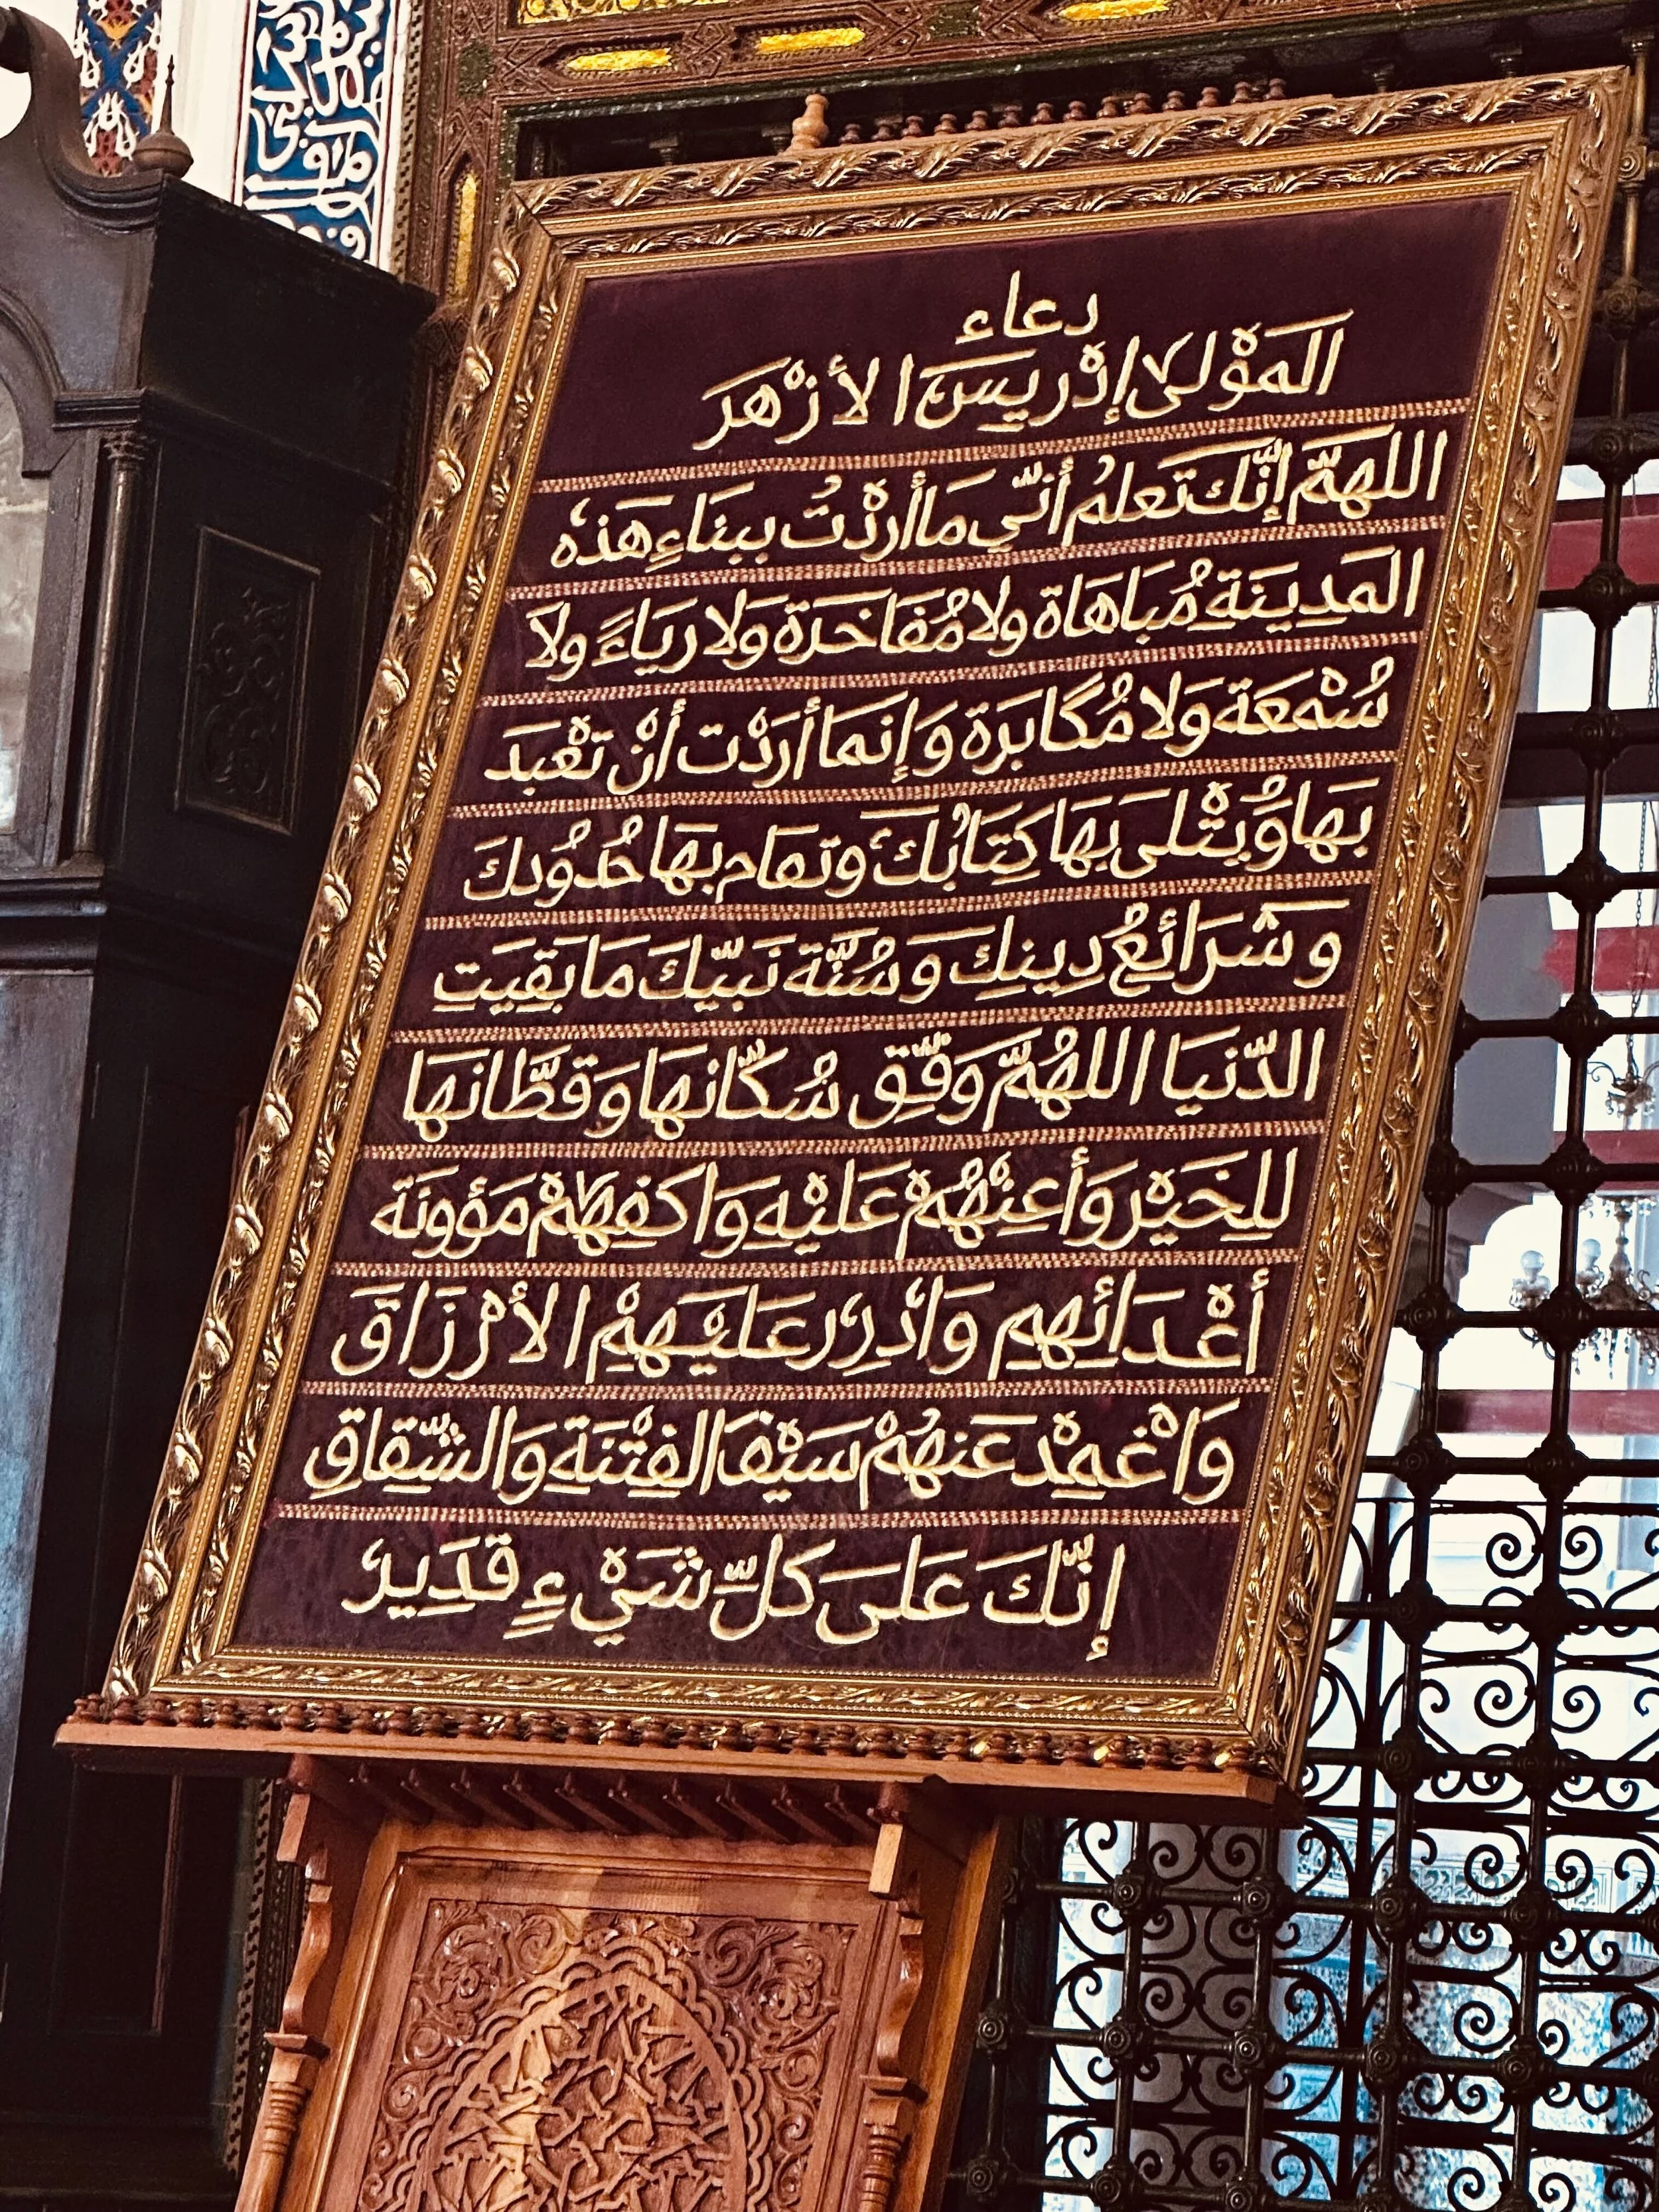 دعاء
المَوْلى إدْريسَ الأزْهَرَ
اللهمَّ إنَّكَ تَعلمُ أنّي مَا أردْتُ ببنَاءِ هَذه
المَدِينَةِ مُبَاهَاة ولا مُفَاخَرَة وَلا ريَاءً ولاَ
سُمْعَة وَلا مُكَابَرَة وَإنَمَا أرَدْت أنْ تعْبَدَ
بَهَا وَيُتْلَى بِهَا كِتَابُكَ وتقَام بهَا حُدُودكَ
وشَرَائِعُ دِينِكَ وَسُنَّة نَبيّكَ مَا بَقِيَتِ
الدّنيَا اللهُمَّ وَفّق سُكّانهَا وَقطَّانهَا
للِخَيْر وَأعِنْهُمْ عَليْهِ وَاكفِهِمْ مَؤونَة
أعْدَائِهِم وَادْرِر عَليَهِمْ الأرْزَاقَ
وَاغْمِدْ عَنهُمْ سَيْفَ الفِتْنَةِ وَالشّقِاقِ
إنّكَ عَلىَ كلّ شَيْءٍ قدَِير